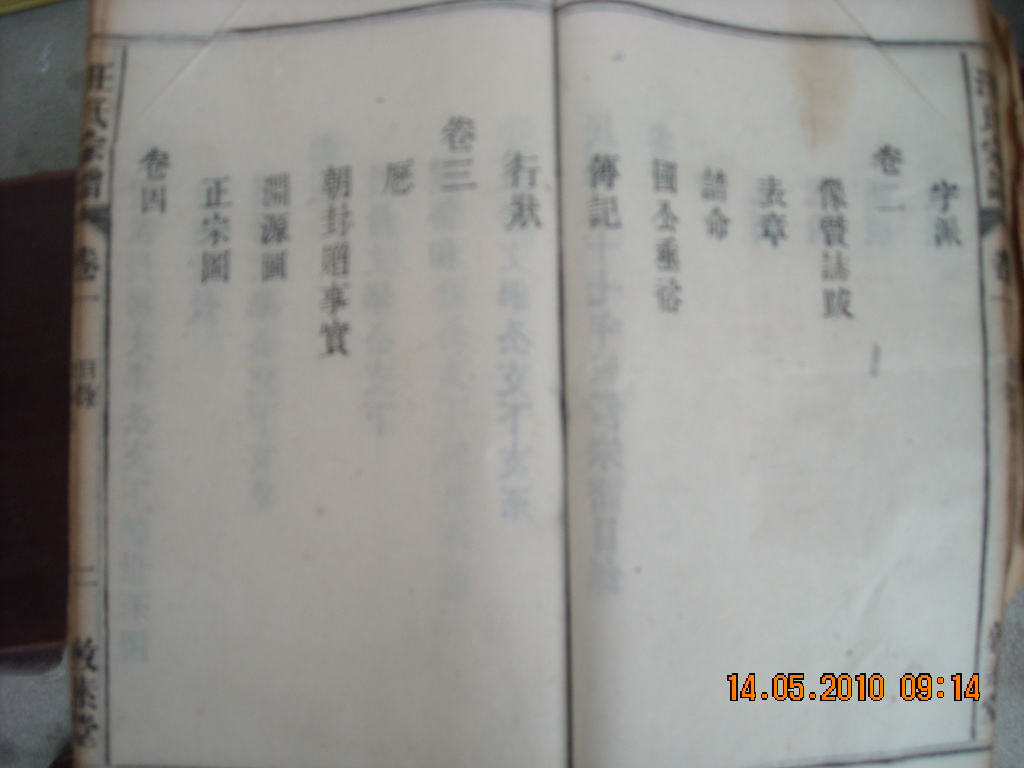 字派
卷二
像贊誌跋
表章
誥命
國公垂裕
傳記
行狀
卷三
歷
朝封贈事實
淵源圖
正宗圖
卷四
汪氏家譜
卷一
目錄
二
敘倫堂
14.05.2010 09:14